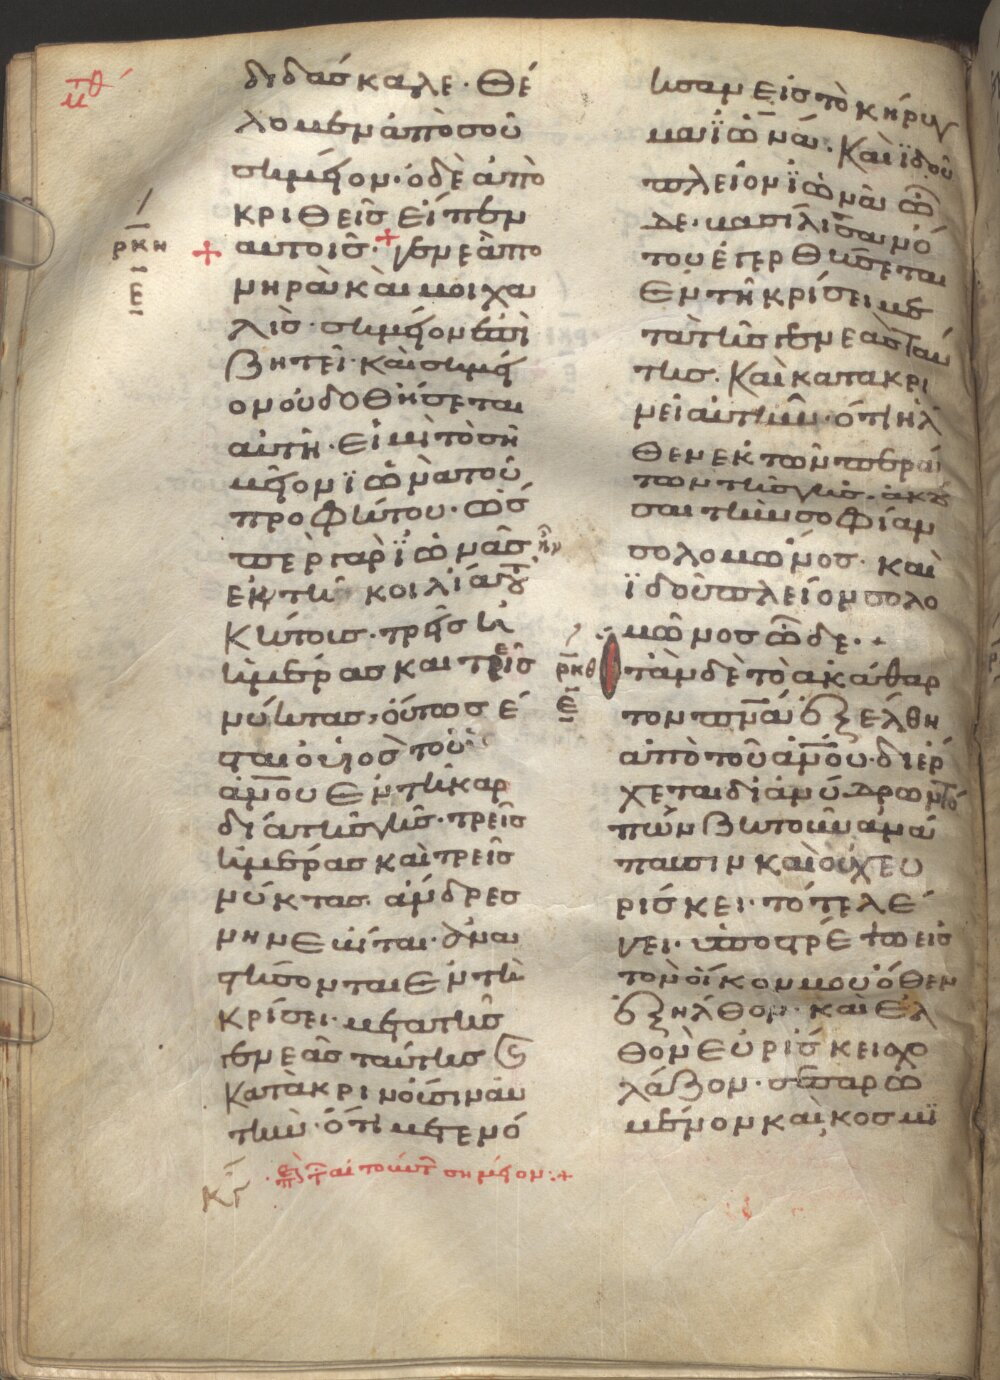 μθ
διδάσκαλε· θέ
λομεν ἀπὸ σοῦ
σημεῖον· ὁ δὲ ἀπο
κριθεὶς εἶπεν
αὐτοῖς· γενεὰ πο
νηρὰ καὶ μοιχα
λὶς· σημεῖον ἐπι
ζητεῖ· καὶ σημεῖ
ον οὐ δοθήσεται
αὐτῆ· εἰ μὴ τὸ ση
μεῖον ϊωνᾶ τοῦ
προφήτου· ὥσ
περ γὰρ ϊωνᾶς ἦν
ἐν τῆ κοιλία τοῦ
κήτους· τρεῖς
ἡμέρας καὶ τρεῖς
νύκτας, οὕτως ἔ
σται ὁ υἱὸς τοῦ
ἀνου ἐν τῆ καρ
δία τῆς γῆς· τρεῖς
ἡμέρας καὶ τρεῖς
νύκτας· ἄνδρες
νηνευῖται· ἀνα
στήσονται ἐν τῆ
κρίσει· μετα τῆς
γενεᾶς ταύτης καὶ
κατακρινοῦσιν αὐ
τὴν· ὅτι μετενό
ησαν εἰς τὸ κήρυγ
μα ϊωνᾶ· καὶ ϊδοῦ
πλεῖον ϊωνᾶ ὧ
δε· βασίλισσα νό
του ἐγερθήσεται
ἐν τῆ κρίσει με
τὰ τῆς γενεᾶς ταύ
της· καὶ κατακρι
νεῖ αὐτὴν· ὅτι ἦλ
θεν ἐκ τῶν περά
των τῆς γῆς· ἀκοῦ
σαι τὴν σοφίαν
σολομῶνος· καὶ
ϊδοῦ πλεῖον σολο
μῶνος ὧδε·
ρκη
ε
ρκθ
ε
ὅταν δὲ τὸ ἀκάθαρ
τον πνα ἐξέλθη
ἀπὸ τοῦ ἀνου· διέρ
χεται δι ἀνύδρων τό
πων ζητοῦν ἀνά
παυσιν καὶ οὐχ εὑ
ρίσκει· τότε λέ
γει· ὑποστρέψω εἰς
τὸν οἶκον μου ὅθεν
ἐξῆλθον· καὶ ἐλ
θὸν εὑρίσκει σχο
λάζον· σεσαρω
μένον καὶ κοσμη